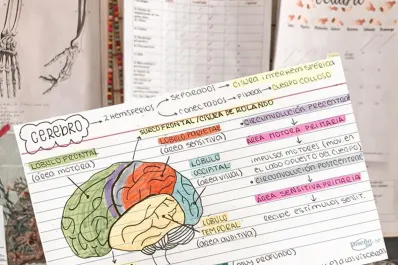 octubre
CEREBRO
→ 2 HEMISFERIOS
→ SEPARADOS → CISURA INTERHEMISFÉRICA
→ CONECTADOS → FIBRAS → CUERPO CALLOSO
SURCO FRONTAL / CISURA DE ROLANDO
LÓBULO FRONTAL
(área motora)
LÓBULO PARIETAL
(área sensitiva)
LÓBULO
OCCIPITAL
(área visual)
LÓBULO
TEMPORAL
(área auditiva)
• CIRCUNVOLUCIÓN PRECENTRAL
ÁREA MOTORA PRIMARIA
IMPULSOS MOTORES (mov. en
el lado opuesto del cuerpo)
• CIRCUNVOLUCIÓN POSTCENTRAL
ÁREA SENSITIVA PRIMARIA
RECIBE ESTÍMULOS SENSIT.
PROFUNDO)
a las vísceras